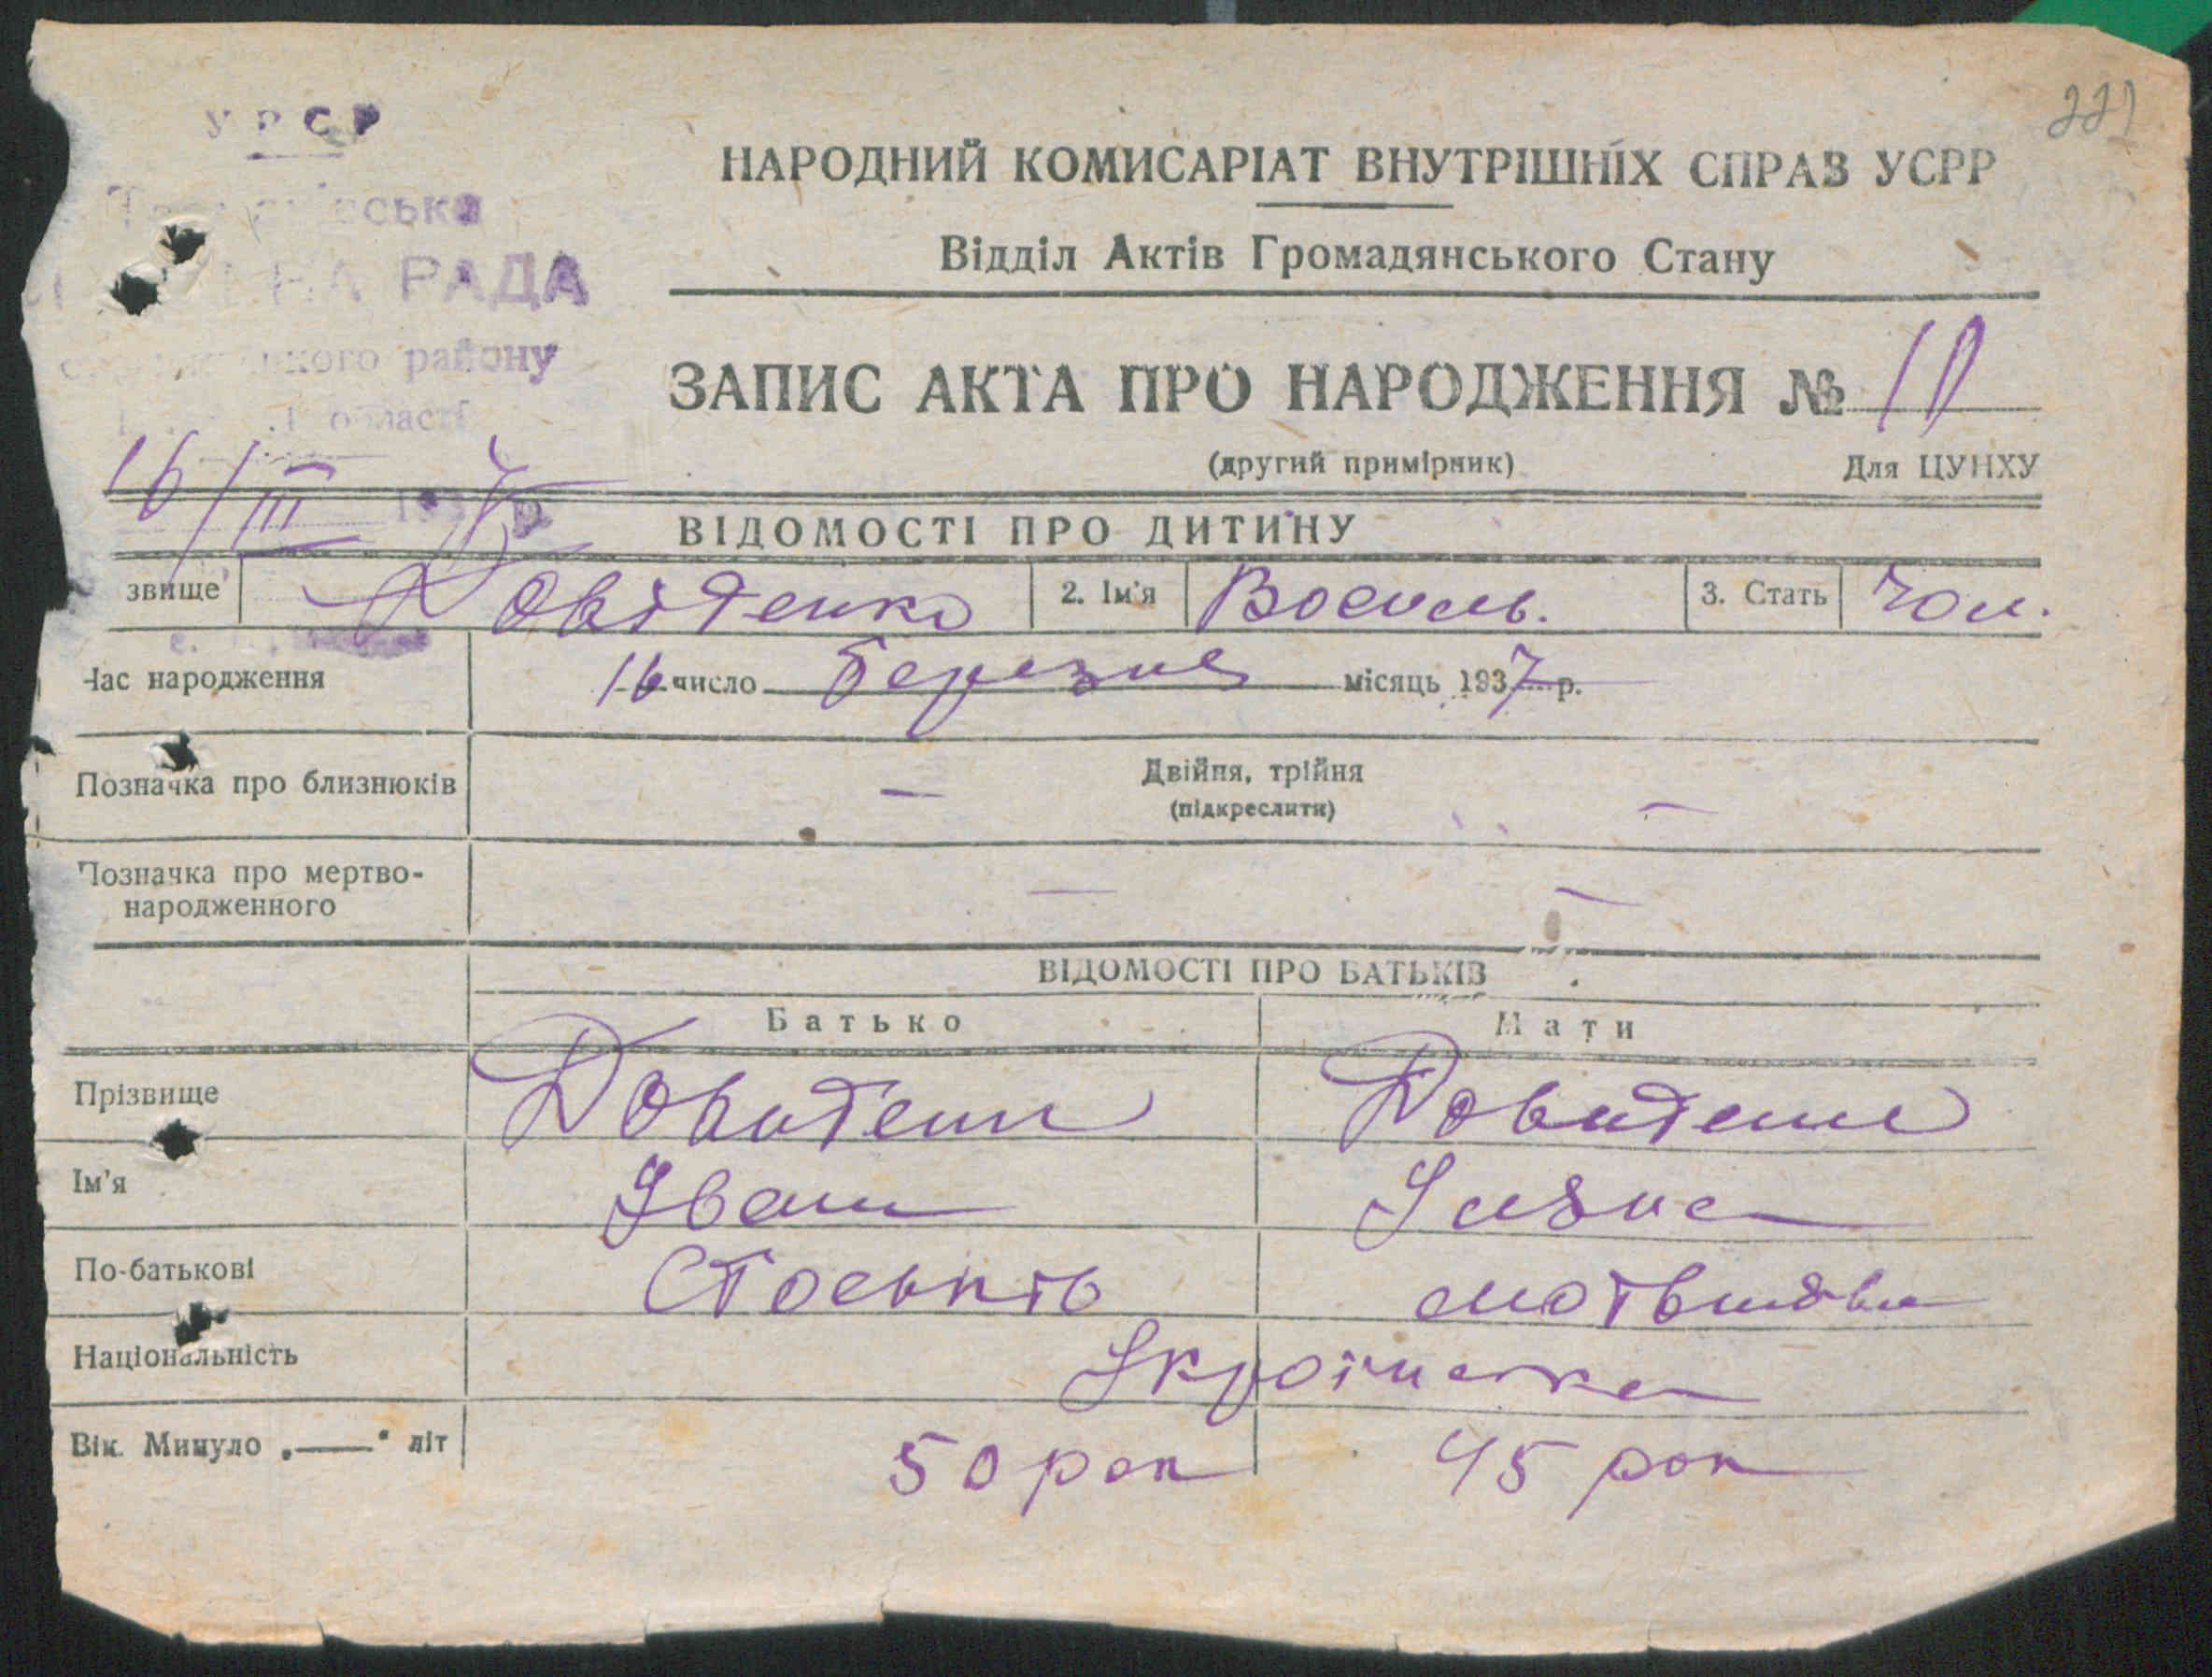 УРСР
221
НАРОДНИЙ КОМИСАРІАТ ВНУТРІШНІХ СПРАВ УСРР
Відділ Актів Громадянського Стану
РАДА
району
області
ЗАПИС АКТА ПРО НАРОДЖЕННЯ № 10
(другий примірник) Для ЦУНХУ
16/III 1937 р.
ВІДОМОСТІ ПРО ДИТИНУ
звище Довіденко 2. Ім'я Восиль. 3. Стать Чол.
Час народження 16 число березня місяць 1937 р.
Позначка про близнюків — Двійня, трійня —
(підкреслити)
Позначка про мертво- — —
народженного
ВІДОМОСТІ ПРО БАТЬКІВ
Батько Мати
Прізвище Довиденк Довиденк
Ім'я Іван
По-батькові
Національність
Вік. Минуло „—“ літ 50 рок 45 рок